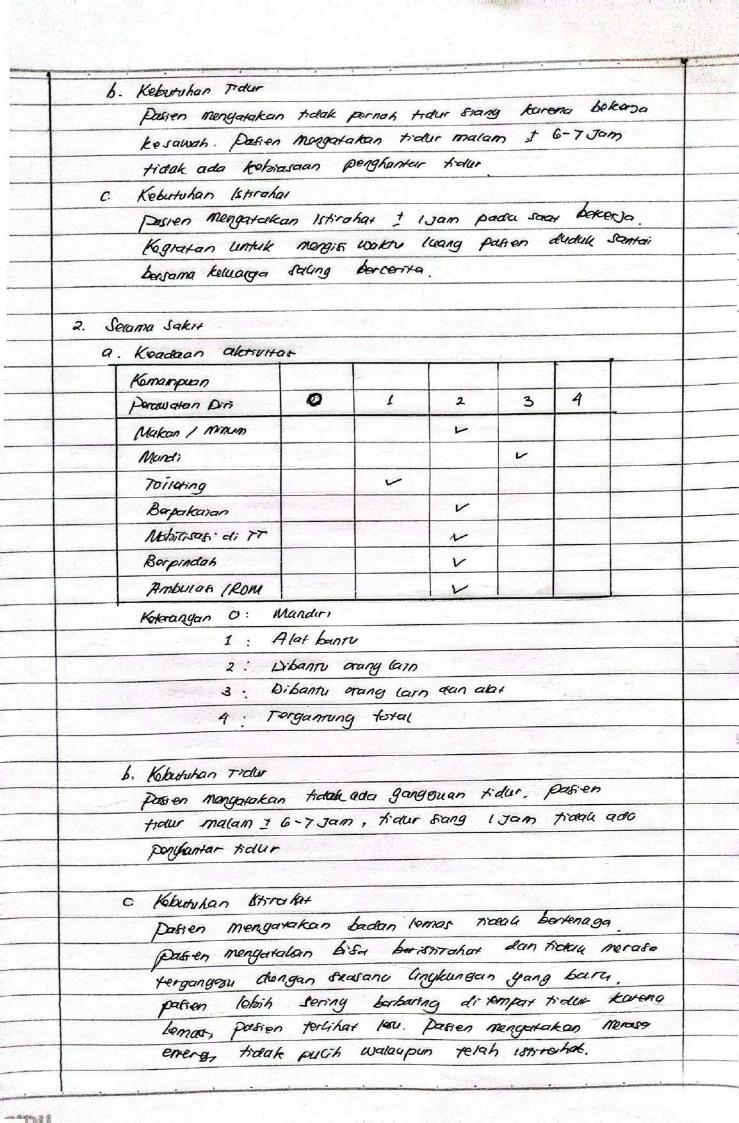 b. Kebutuhan Tidur
Pasien mengatakan tidak pernah tidur siang karena bekerja
kesawah. Pasien mengatakan tidur malam ± 6-7 Jam
tidak ada kebiasaan penghantar tidur
c. Kebutuhan Istirahat
Pasien mengatakan istirahat ± 1 jam pada saat bekerja.
Kegiatan untuk mengisi waktu luang pasien duduk santai
bersama keluarga saling bercerita.
2. Selama Sakit
a. Keadaan aktivitas
Kemampuan
Perawatan Diri 0 1 2 3 4
Makan / minum ✓
Mandi ✓
Toileting ✓
Berpakaian ✓
Mobilisasi di TT ✓
Berpindah ✓
Ambulasi / ROM ✓
Keterangan 0 : Mandiri
1 : Alat bantu
2 : Dibantu orang lain
3 : Dibantu orang lain dan alat
4 : Tergantung total
b. Kebutuhan Tidur
Pasien mengatakan tidak ada gangguan tidur. pasien
tidur malam ± 6-7 Jam, tidur siang 1 Jam tidak ada
penghantar tidur
c Kebutuhan Istirahat
Pasien mengatakan badan lemas tidak bertenaga.
pasien mengatakan bisa beristirahat dan tidak merasa
terganggu dengan suasana lingkungan yang baru.
pasien lebih sering berbaring di tempat tidur karena
lemas, pasien terlihat lesu. Pasien mengatakan merasa
energi tidak pulih walaupun telah istirahat.